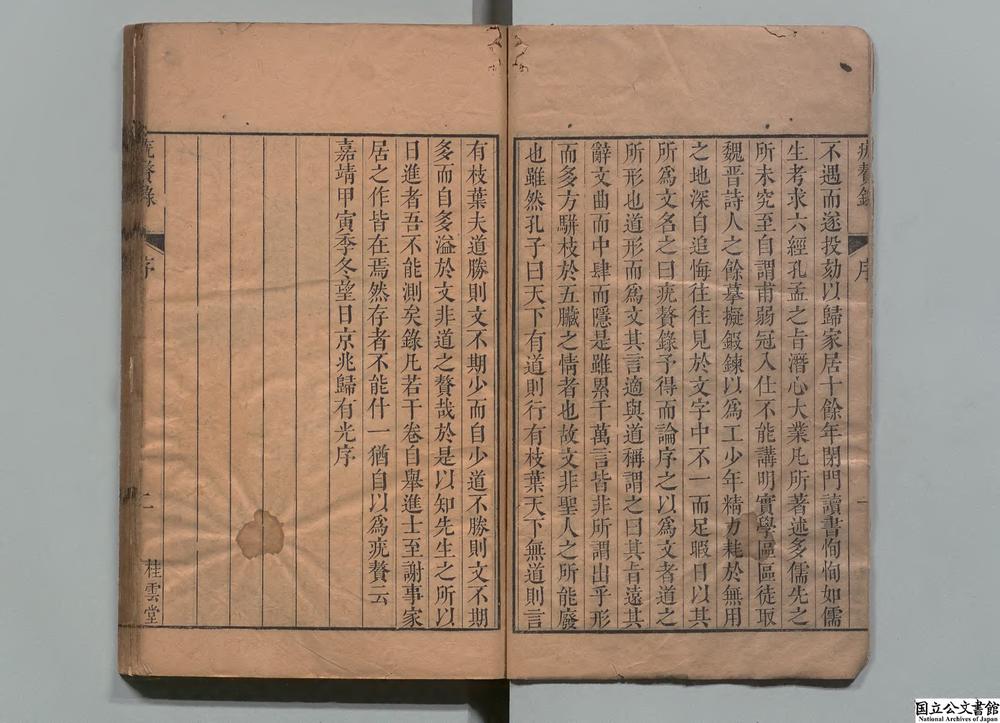 不遇而遂投劾以歸家居十餘年閉門讀書恂恂如儒
生考求六經孔孟之旨潛心大業凡所著述多儒先之
所未究至自謂甫弱冠入仕不能講明實學區區徒取
魏晉詩人之餘摹擬鍜鍊以爲工少年精力耗於無用
之地深自追悔往往見於文字中不一而足暇日以其
所爲文名之曰疣贅錄予得而論序之以爲文者道之
所形也道形而爲文其言適與道稱謂之曰其旨遠其
辭文曲而中肆而隱是雖累千萬言皆非所謂出乎形
而多方駢枝於五臟之情者也故文非聖人之所能廢
也雖然孔子曰天下有道則行有枝葉天下無道則言
疣贅錄 序 一
有枝葉夫道勝則文不期少而自少道不勝則文不期
多而自多溢於文非道之贅哉於是以知先生之所以
日進者吾不能測矣錄凡若干卷自舉進士至謝事家
居之作皆在焉然存者不能什一猶自以爲疣贅云
嘉靖甲寅季冬望日京兆歸有光序
疣贅錄 序 二 桂雲堂
国立公文書館
National Archives of Japan